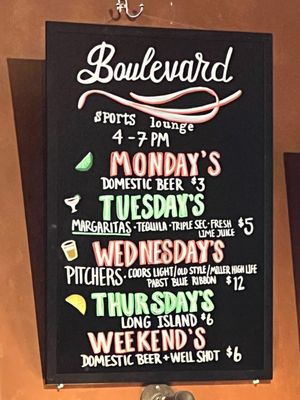 Boulevard
sports lounge
4-7 PM
MONDAY'S
DOMESTIC BEER $3
TUESDAY'S
MARGARITAS · TEQUILA · TRIPLE SEC · FRESH LIME JUICE $5
WEDNESDAY'S
PITCHERS · COORS LIGHT/OLD STYLE/MILLER HIGH LIFE
PABST BLUE RIBBON $12
THURSDAY'S
LONG ISLAND $6
WEEKEND'S
DOMESTIC BEER + WELL SHOT $6